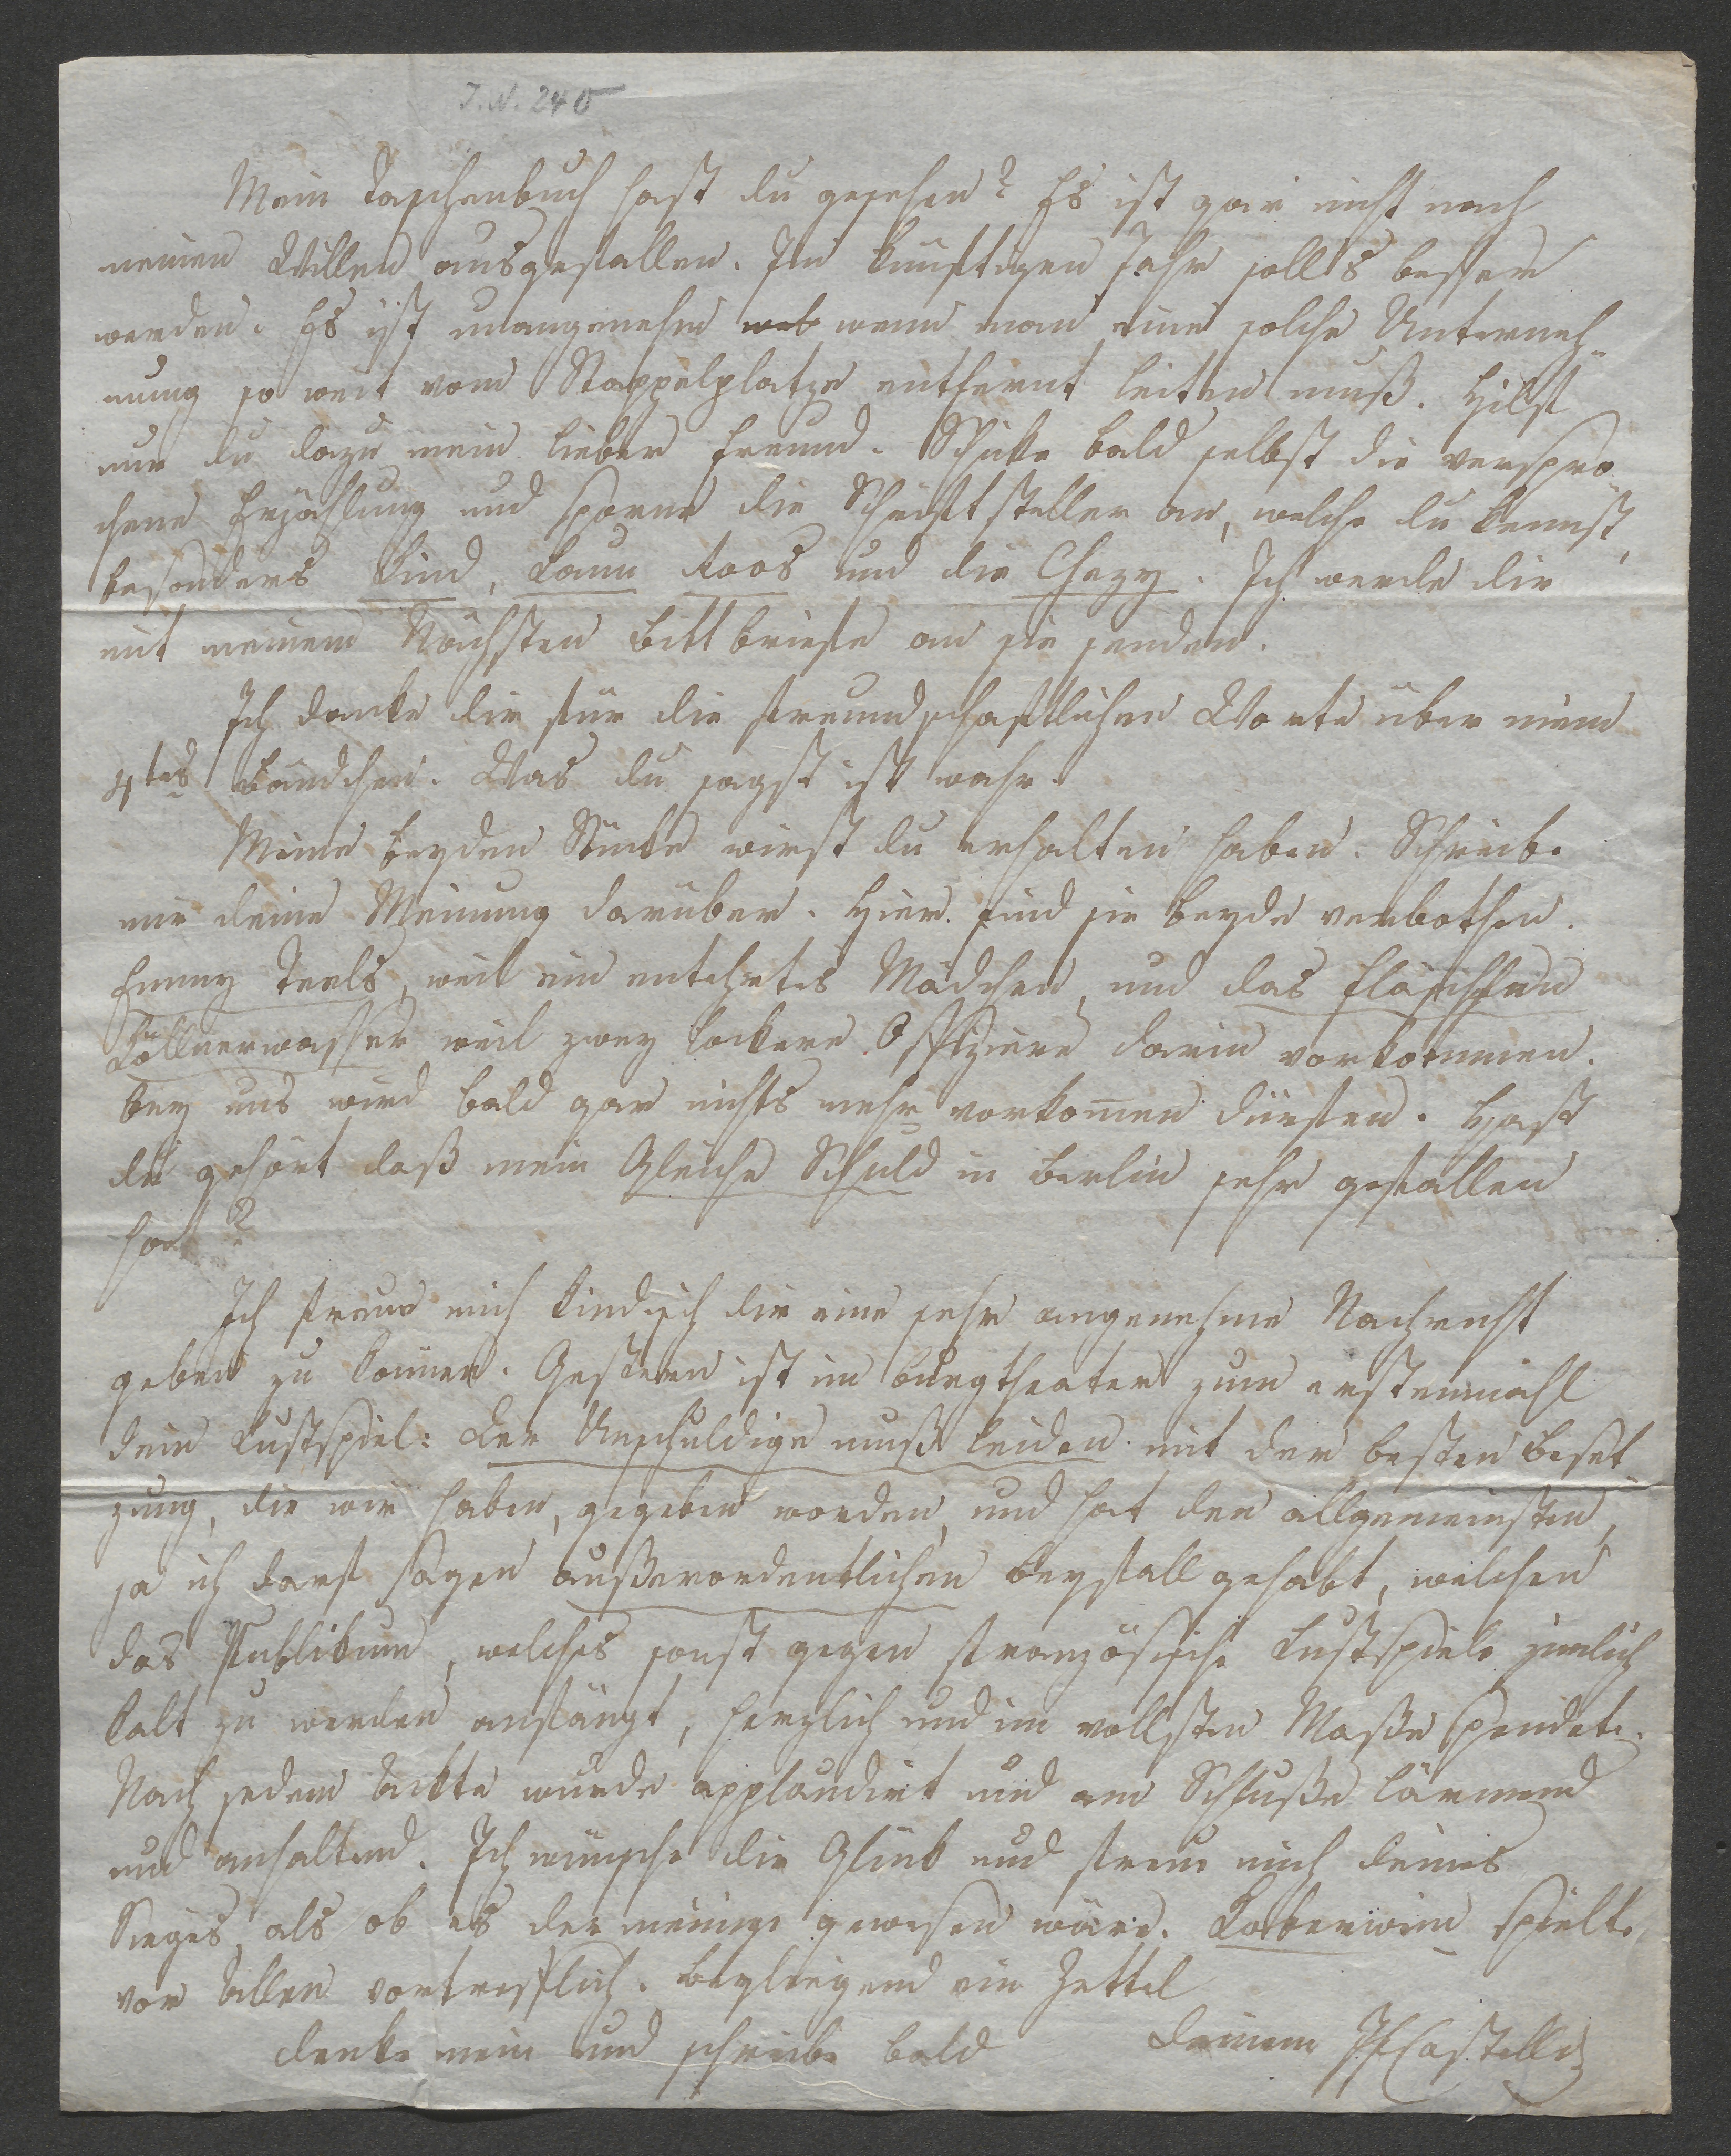 J. N. 240
Mein Taschenbuch hast du gesehen? Es ist gar nicht nach
meinem Willen ausgefallen. Im künftigen Jahr soll's besser
werden. Es ist unangenehm wenn man eine solche Unterneh-
mung so weit vom Stappelplatze entfernt leiten muß. Hilf
nur du dazu mein lieber Freund. Schicke bald selbst die verspro-
chene Erzählung und sporne die Schriftsteller an, welche du kennst,
besonders Kind, Laun Roos und die Chezy. Ich werde dir
mit meinem Nächsten Bittbriefe an sie senden.
Ich danke dir für die freundschaftlichen Worte über mein
4tes Bändchen. Was du sagst ist wahr.
Meine beyden Stücke wirst du erhalten haben. Schreibe
mir deine Meinung darüber. Hier sind sie beyde verbothen.
Emmy Teels, weil ein entehrtes Mädchen, und das Fläschchen
Köllnerwasser weil zwey lockere Offiziere darin vorkommen.
Bey uns wird bald gar nichts mehr vorkom̄en dürfen. Hast
du gehört daß mein Gleiche Schuld in Berlin sehr gefallen
hat?
Ich freue mich kindisch dir eine sehr angenehme Nachricht
geben zu können. Gestern ist im Burgtheater zum erstenmahl
dein Lustspiel: Der Unschuldige muß leiden mit der besten Beset
zung, die wir haben, gegeben worden, und hat den allgemeinsten,
ja ich darf sagen außerordentlichen Beyfall gehabt, welchen
das Publikum, welches sonst gegen französische Lustspiele zimlich
kalt zu werden anfängt, herzlich und im vollsten Maße spendete.
Nach jedem Ackte wurde applaudirt und am Schluße lärmend
und anhaltend. Ich wünsche dir Glück und freue mich deines
Sieges, als ob es der meinige gewesen wäre. Korberwein spielte
vor Allen vortrefflich. Beyliegend ein Zettel
denke mein und schreibe bald Deinem JFCastelli